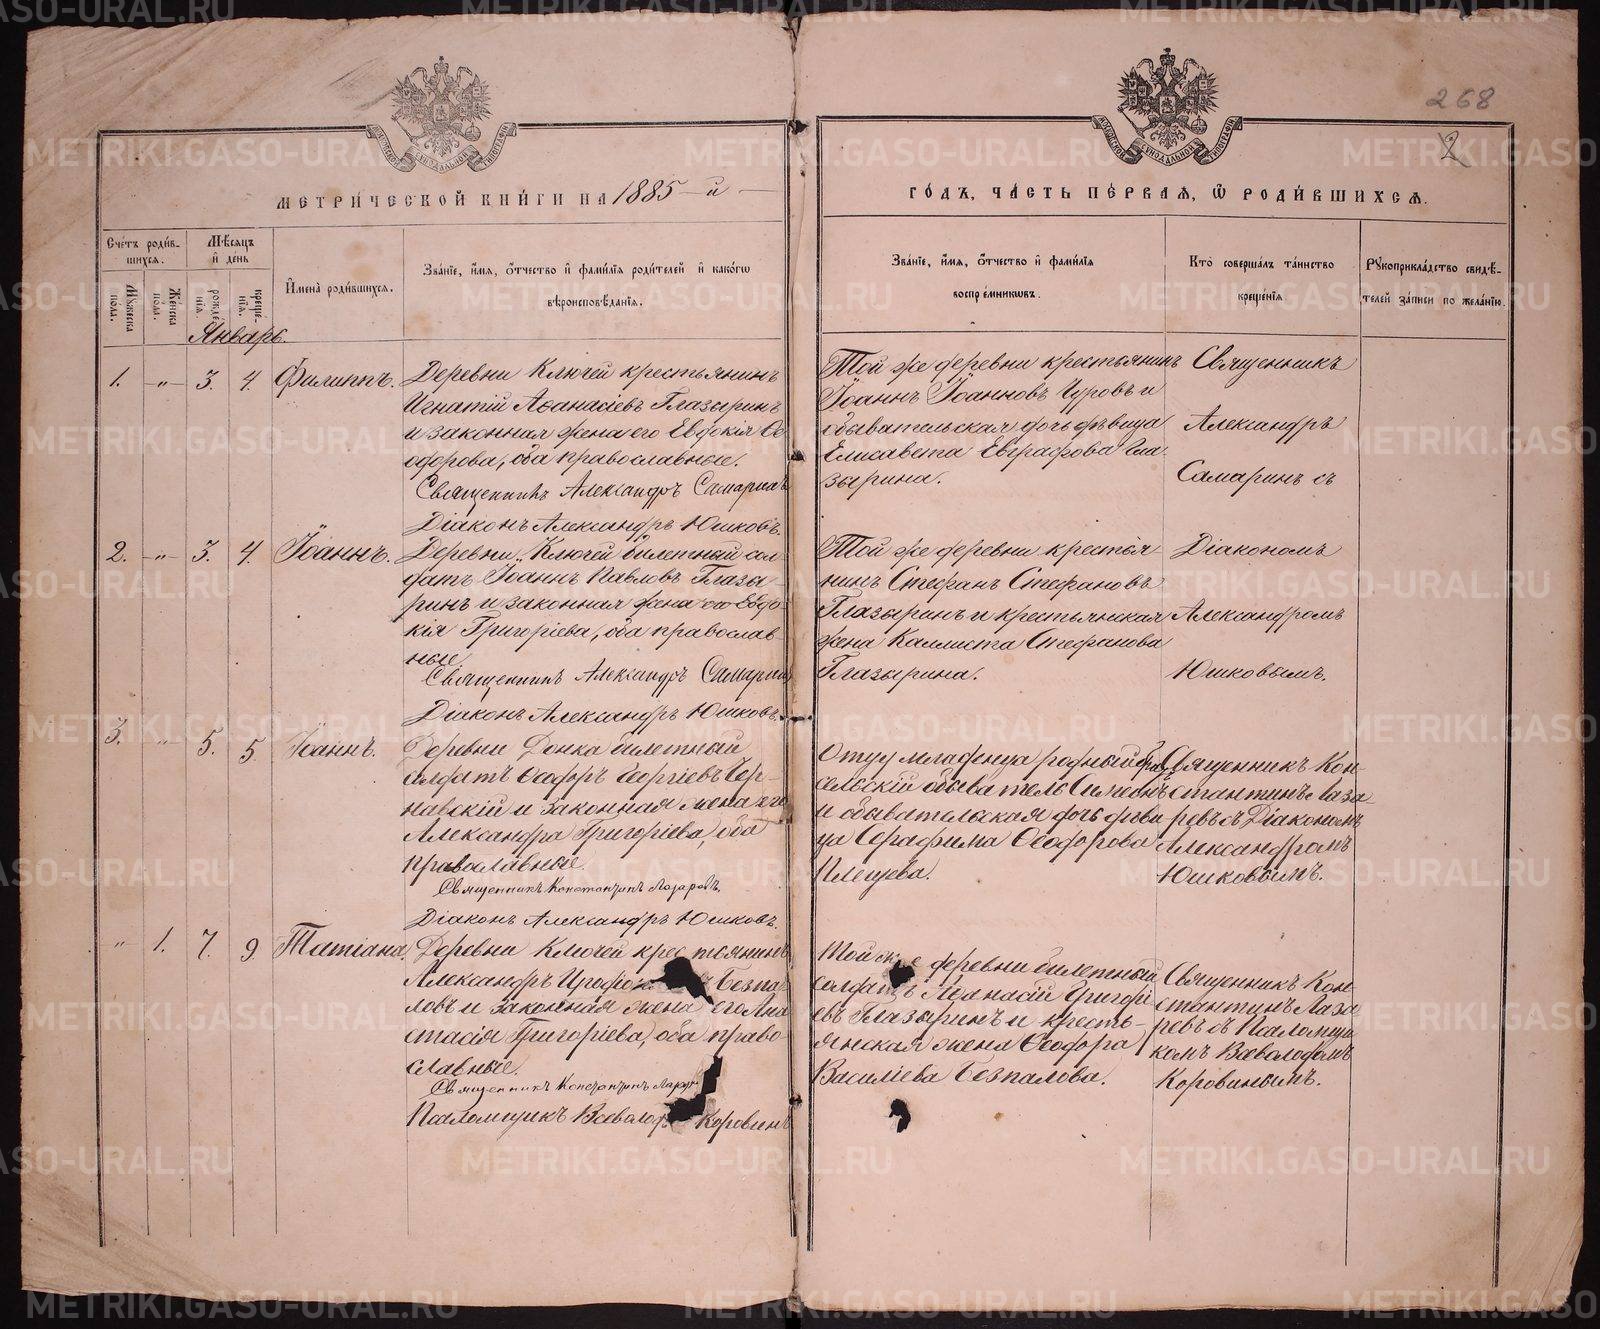 268
2
МЕТРИ́ЧЕСКОЙ КНИ́ГИ НА 1885-й
ГО́ДЪ, ЧА́СТЬ ПЕ́РВАЯ, Ѿ РОДИ́ВШИХСѦ.
Сче́тъ роди́в-
шихсѧ.
Мѣ́сѧцъ
и҆ де́нь
Мꙋ́жеска по́ла.
Же́нска по́ла.
рожде́нїѧ.
креще́нїѧ.
И҆мена̀ роди́вшихсѧ.
Зва́нїе, и҆́мѧ, ѻ҆́тчество и҆ фами́лїѧ роди́телей и҆ како́гѡ
вѣроисповѣ́данїѧ.
Зва́нїе, и҆́мѧ, ѻ҆́тчество и҆ фами́лїѧ
воспрїе́мникѡвъ.
Кто̀ соверша́лъ та́инство
креще́нїѧ.
Рꙋкоприкла́дство свидѣ́-
телей за́писи по жела́нїю.
Январь.
1. „ 3. 4. Филиппъ.
Деревни Ключей крестьянинъ
Игнатій Аѳанасіевъ Глазыринъ
и законная жена его Евдокія Ѳе-
одорова, оба православные.
Священникъ Александръ Самаринъ
Діаконъ Александръ Юшковъ.
Той же деревни крестьянинъ
Іоаннъ Іоанновъ Чуровъ и
обывательская дочь дѣвица
Елисавета Евграфова Гла-
зырина.
Священникъ
Александръ
Самаринъ съ
2. „ 3. 4. Іоаннъ.
Деревни Ключей билетный сол-
датъ Іоаннъ Павловъ Глазы-
ринъ и законная жена его Евдо-
кія Григоріева, оба православ-
ные.
Священникъ Александръ Самаринъ
Діаконъ Александръ Юшковъ.
Той же деревни крестья-
нинъ Стефанъ Стефановъ
Глазыринъ и крестьянская
жена Каллиста Стефанова
Глазырина.
Діакономъ
Александромъ
Юшковымъ.
3. „ 5. 5. Іоаннъ.
Деревни Донка билетный
солдатъ Ѳеодоръ Георгіевъ Чер-
навскій и законная жена его
Александра Григоріева, оба
православные.
Священникъ Константинъ Лазаревъ.
Діаконъ Александръ Юшковъ.
Отцу младенца родный братъ
сельскій обыватель Симеонъ
и обывательская дочь дѣви-
ца Серафима Ѳеодорова
Плещева.
Священникъ Кон-
стантинъ Лаза-
ревъ съ Діакономъ
Александромъ
Юшковымъ.
„ 1. 7. 9. Татіана.
Деревни Ключей крестьянинъ
Александръ Безпа-
ловъ и законная жена его Ана-
стасія Григоріева, оба право-
славные.
Священникъ Константинъ Лазар
Псаломщикъ Всеволод Коровинъ
Той же деревни билетный
солдатъ Аѳанасій Григорі-
евъ Глазыринъ и кресть-
янская жена Ѳеодора
Василіева Безпалова.
Священникъ Кон-
стантинъ Лаза-
ревъ съ Псаломщи-
комъ Всеволодомъ
Коровинымъ.
METRIKI.GASO-URAL.RU